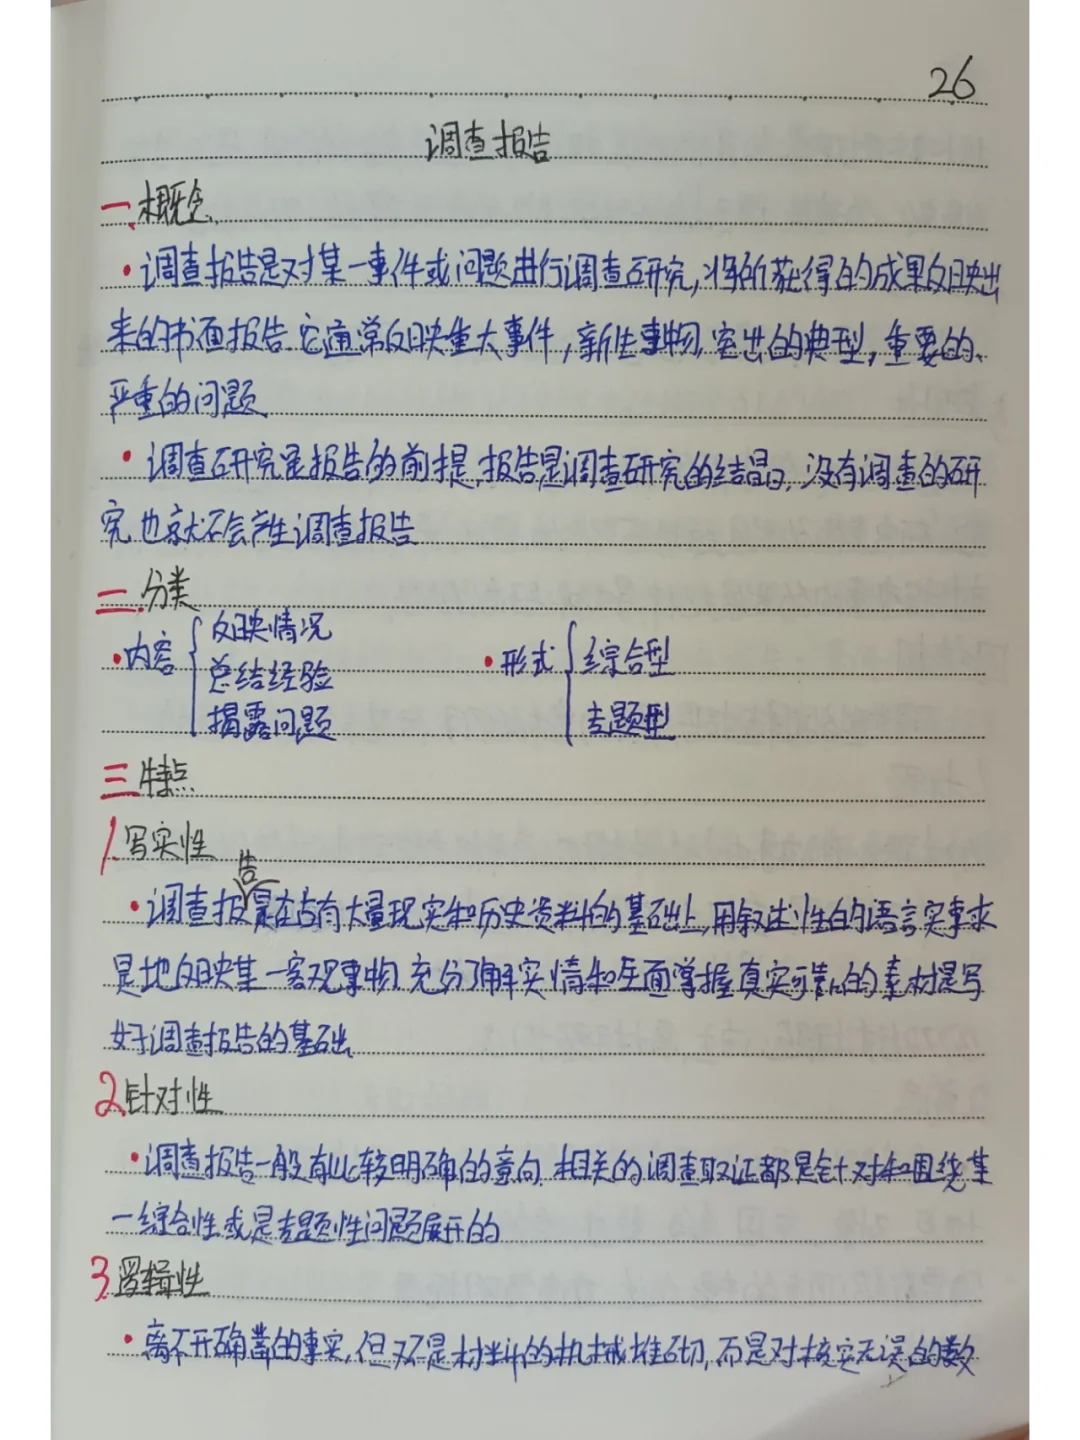 26
调查报告
一、概念
·调查报告是对某一事件或问题进行调查研究,将所获得的成果反映出
来的书面报告.它通常反映重大事件,新生事物,突出的典型,重要的、
严重的问题
·调查研究是报告的前提,报告是调查研究的结晶,没有调查的研
究也就不会产生调查报告
二、分类
·内容{反映情况 总结经验 揭露问题 ·形式{综合型 专题型
三、特点
1.写实性
·调查报告是在占有大量现实和历史资料的基础上,用叙述性的语言实事求
是地反映某一客观事物.充分了解实情和全面掌握真实可靠的素材是写
好调查报告的基础
2.针对性
·调查报告一般有比较明确的意向.相关的调查取证都是针对和围绕某
一综合性或是专题性问题展开的
3.逻辑性
·离不开确凿的事实,但又不是材料的机械堆砌,而是对核实无误的数